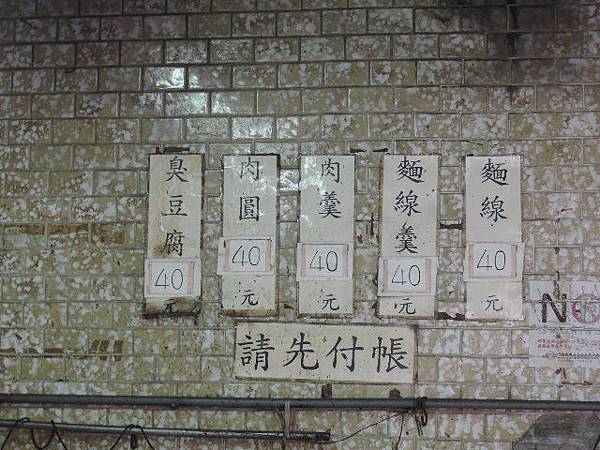 臭豆腐 40 元
肉圓 40 元
肉羹 40 元
麵線羹 40 元
麵線 40 元
請先付帳
NO